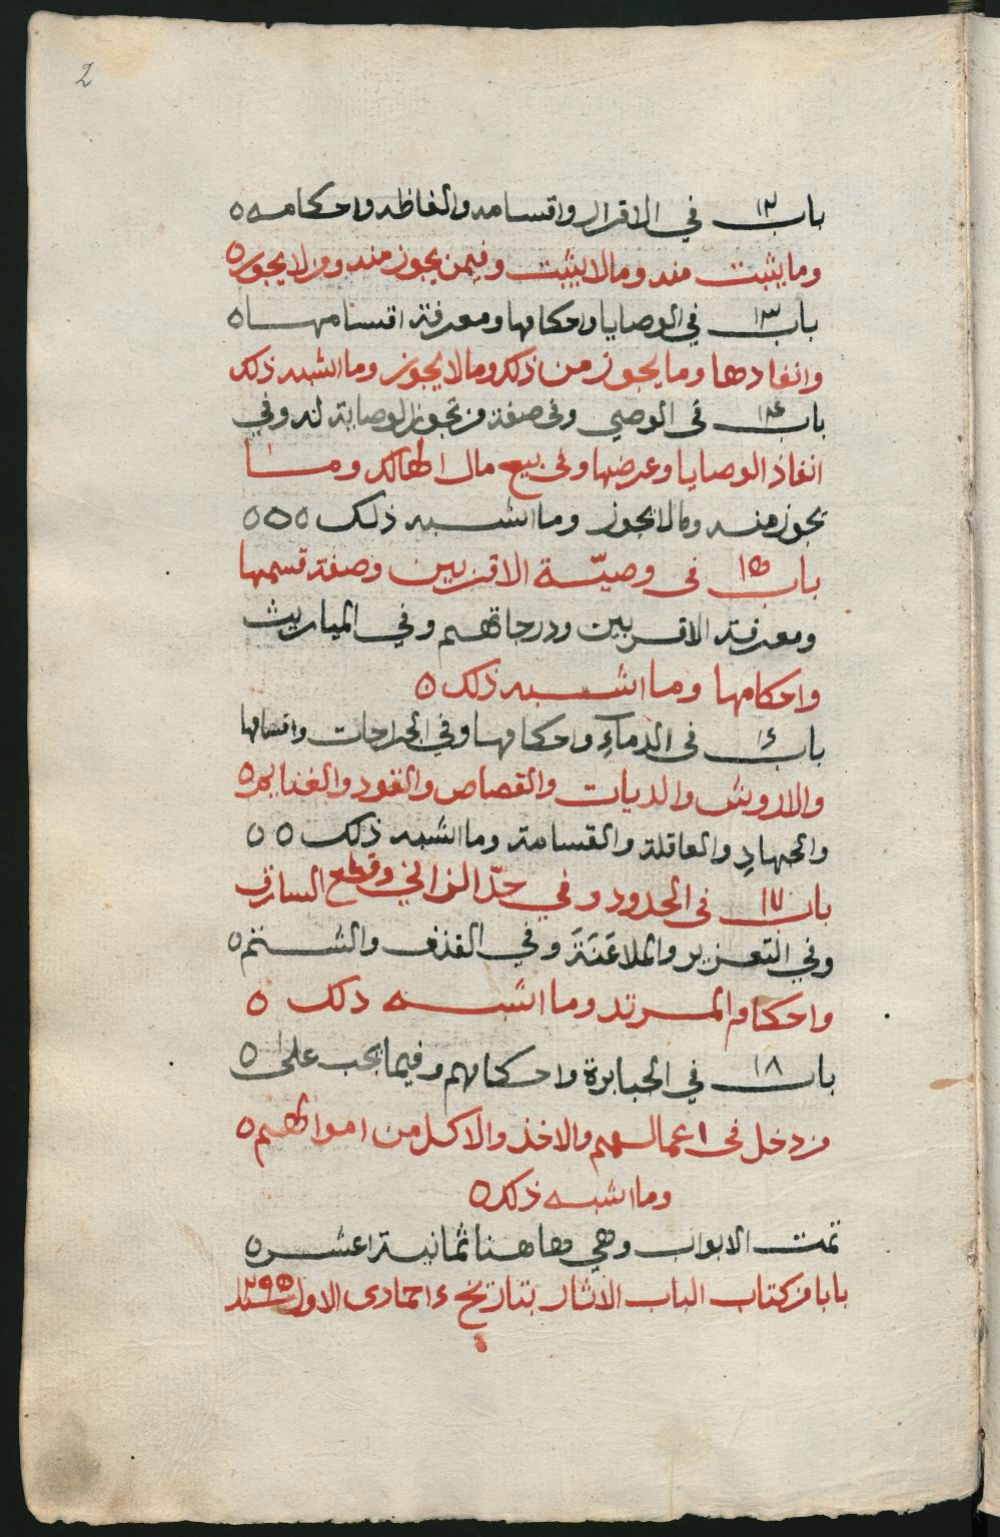 2
باب ١٢ في الاقرار واقسامه والفاظه واحكامه ٥
وما يثبت منه وما لا يثبت وفيمن يجوز منه ومن لا يجوز ٥
باب ١٣ في الوصايا واحكامها ومعرفة اقسامها ٥
وانفادها وما يجوز من ذلك وما لا يجوز وما اشبه ذلك
باب ١٤ في الوصي وفي صفة من تجوز الوصاية له وفي
انفاذ الوصايا وعرضها وفي بيع مال الهالك وما
يجوز منه وما لا يجوز وما اشبه ذلك ٥٥٥
باب ١٥ في وصيّة الاقربين وصفة قسمها
ومعرفة الاقربين ودرجاتهم وفي المياريث
واحكامها وما اشبه ذلك ٥
باب ١٦ في الدماء واحكامها وفي الجراحات واقسامها
والاروش والديات والقصاص والقود والغنايم ٥
والجهاد والعاقلة والقسامة وما اشبه ذلك ٥ ٥
باب ١٧ في الحدود وفي حدّ الزاني وقطع السارق
وفي التعزير والملاعَنَةَ وفي القذف والشتم ٥
واحكام المرتد وما اشبه ذلك ٥
باب ١٨ في الجبابرة واحكامهم وفيما يجب على ٥
من دخل في اعمالهم والاخذ والاكل من اموالهم ٥
وما اشبه ذلك ٥
تمت الابواب وهي هاهنا ثمانية اعشر ٥
بابا من كتاب الباب الاثار بتاريخ جمادى الاول سنة